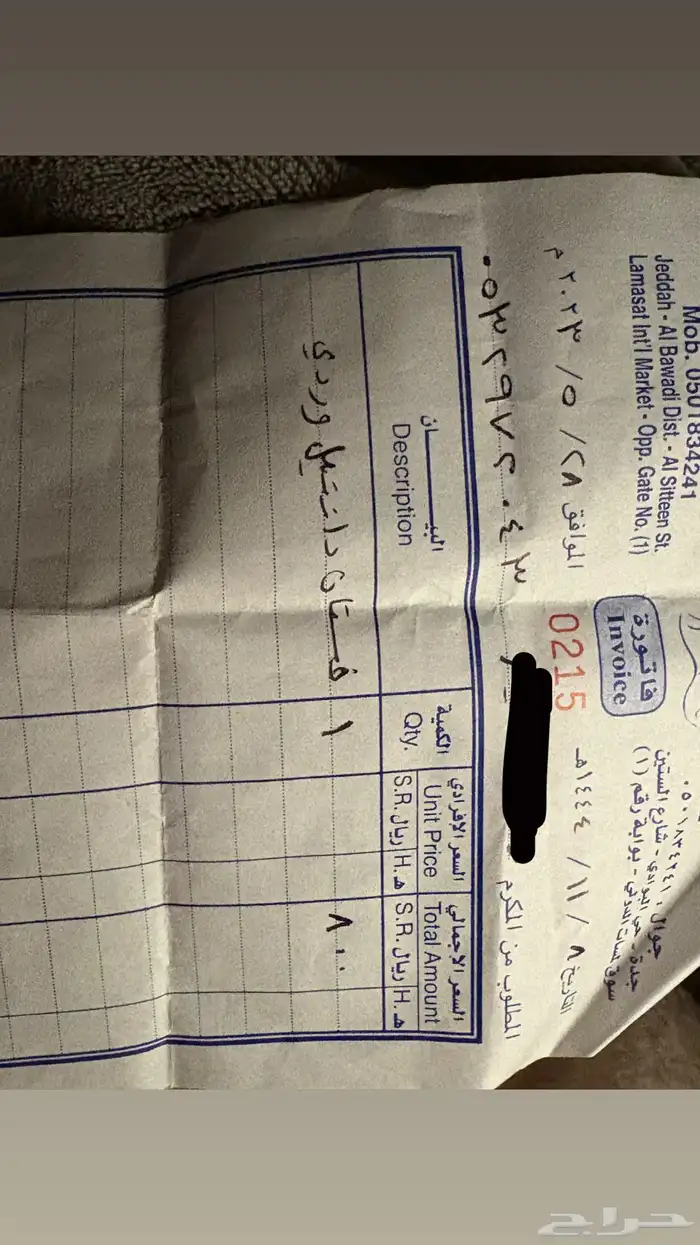 Mob. 0501834241
Jeddah - Al Bawadi Dist. - Al Sitteen St.
Lamasat Int'l Market - Opp. Gate No. (1)
جوال : ٠٥٠١٨٣٤٢٤١
جدة - حي البوادي - شارع الستين
سوق لمسات الدولي - بوابة رقم (١)
فاتورة
Invoice
0215
التاريخ ٨ / ١١ / ١٤٤٤هـ
الموافق ٢٨ / ٥ / ٢٠٢٣م
المطلوب من المكرم
البيــــــان
Description
الكمية
Qty.
السعر الإفرادي
Unit Price
S.R. ريال
H. هـ
السعر الإجمالي
Total Amount
S.R. ريال
H. هـ
١ فستان دانتيل وردي ١ ٨٠٠
حراج